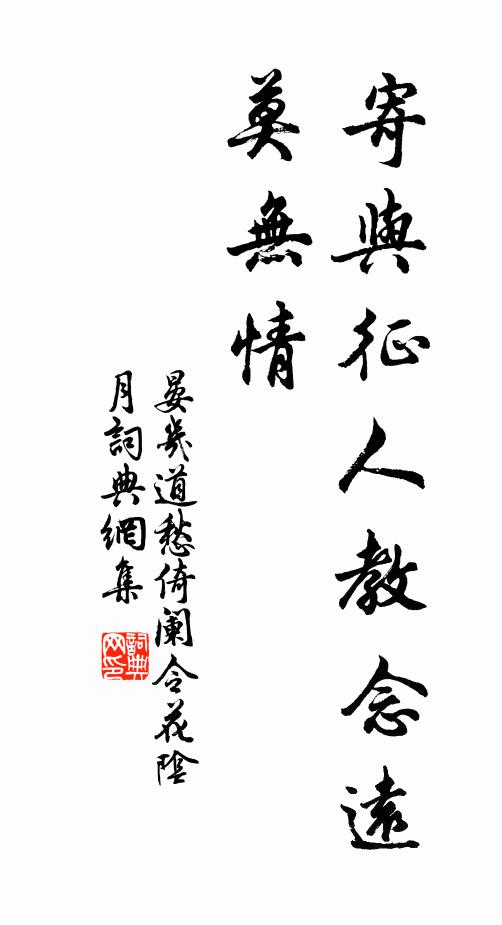 寄與征人教念遠
莫無情
晏幾道愁倚闌令花陰
月詞典網集
詞典
网印